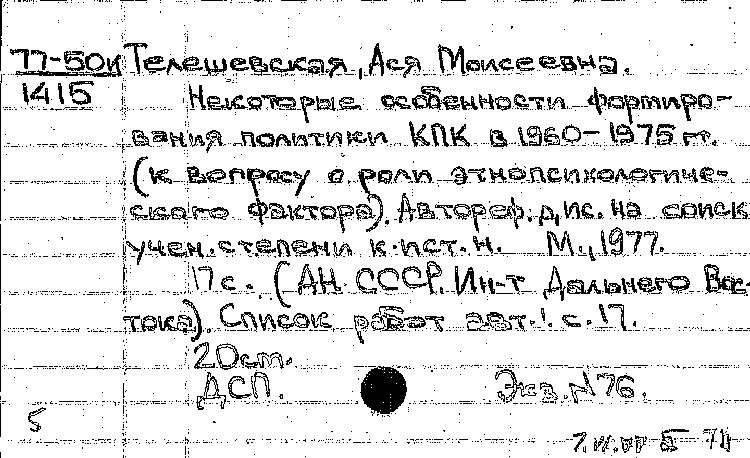 77-50к Телешевская, Ася Моисеевна.
1415
Некоторые особенности формиро-
вания политики КПК в 1960-1975 гг.
(к вопросу о роли этнопсихологиче-
ского фактора). Автореф. дис. на соиск
учен. степени к. ист. н. М., 1977.
17 с. (АН СССР. Ин-т Дальнего Вос-
тока). Список работ авт.: с. 17.
20 см.
ДСП. Экз. N 76.
5